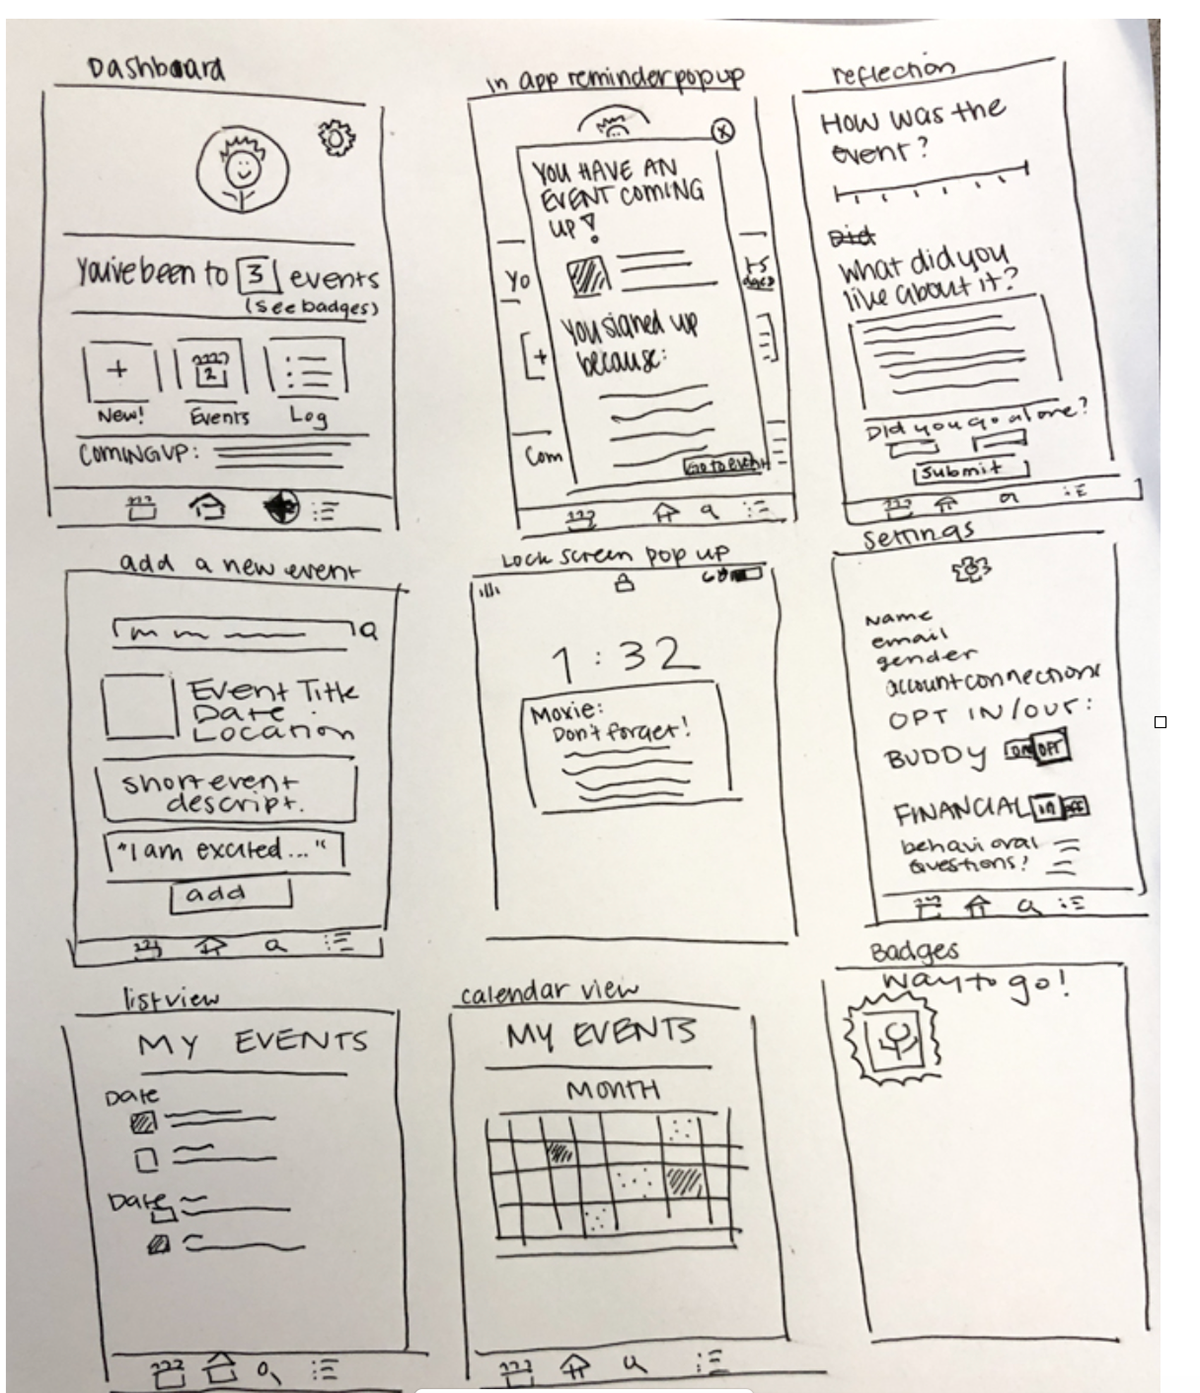 Dashboard
You've been to 3 events
(see badges)
+
2
New! Events Log
COMING UP:
in app reminder pop up
X
YOU HAVE AN
EVENT COMING
UP!
Yo
ts
dges
You signed up
because:
+
Com
Go to event
reflection
How was the
event?
Did
What did you
like about it?
Did you go alone?
Submit
add a new event
Event Title
Date
Location
short event
descript.
"I am excited..."
add
Lock screen pop up
1:32
Moxie:
Don't forget!
Settings
Name
email
gender
account connections
OPT IN/OUT:
BUDDY ON OFF
FINANCIAL in off
behavioral
questions?
list view
MY EVENTS
Date
Date
calendar view
MY EVENTS
MONTH
Badges
Way to go!